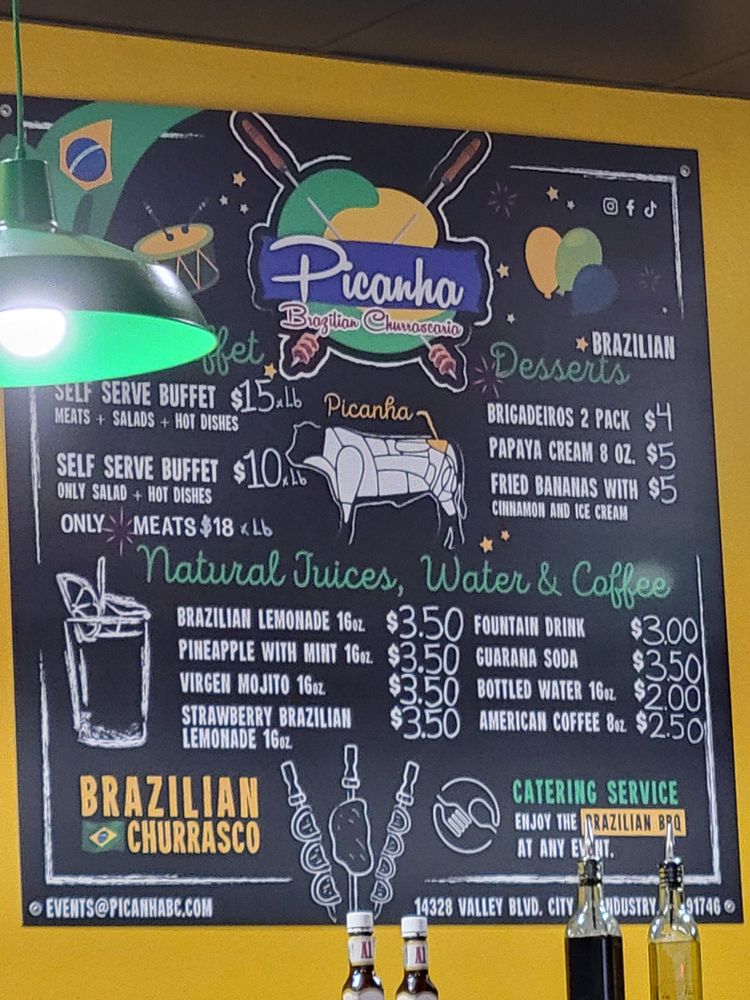 Picanha
Brazilian Churrascaria
SELF SERVE BUFFET $15 x Lb
MEATS + SALADS + HOT DISHES
SELF SERVE BUFFET $10 x Lb
ONLY SALAD + HOT DISHES
ONLY MEATS $18 x Lb
Picanha
BRAZILIAN
Desserts
BRIGADEIROS 2 PACK $4
PAPAYA CREAM 8 OZ. $5
FRIED BANANAS WITH $5
CINNAMON AND ICE CREAM
Natural Juices, Water & Coffee
BRAZILIAN LEMONADE 16OZ. $3.50
PINEAPPLE WITH MINT 16OZ. $3.50
VIRGEN MOJITO 16OZ. $3.50
STRAWBERRY BRAZILIAN
LEMONADE 16OZ. $3.50
FOUNTAIN DRINK $3.00
GUARANA SODA $3.50
BOTTLED WATER 16OZ. $2.00
AMERICAN COFFEE 8OZ $2.50
BRAZILIAN
CHURRASCO
CATERING SERVICE
ENJOY THE BRAZILIAN BBQ
AT ANY
EVENTS@PICANHABC.COM
14328 VALLEY BLVD. CITY INDUSTRY 91746
A1
A1